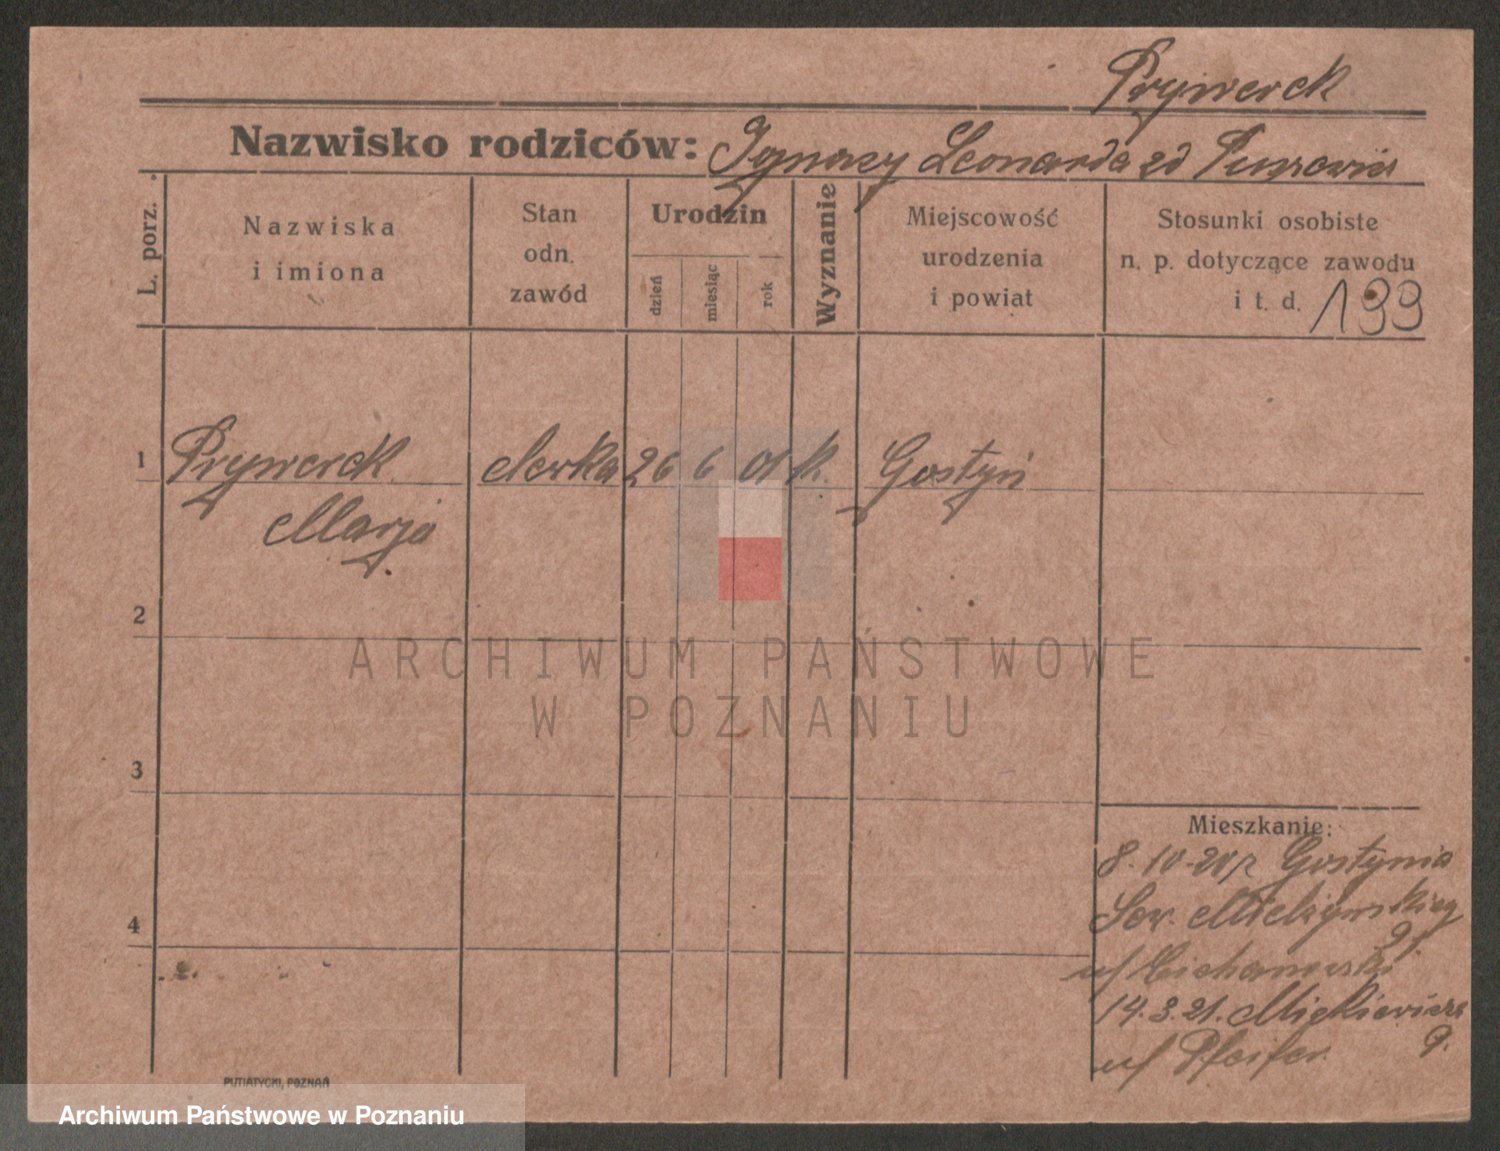 Prywerek
Nazwisko rodziców: Ignacy Leonarda zd
L. porz.
Nazwiska
i imiona
Stan
odn.
zawód
Urodzin
dzień
miesiąc
rok
Wyznanie
Miejscowość
urodzenia
i powiat
Stosunki osobiste
n. p. dotyczące zawodu
i t. d. 199
1 Prywerek córka 26 6 01 k. Gostyń
Marja
2
ARCHIWUM PAŃSTWOWE
W POZNANIU
3
Mieszkanie:
8.10.20 z Gostynia
4
u/ Cichanowski
14.3.21. 9.
u/ Pfeifer
PUTIATYCKI, POZNAŃ
Archiwum Państwowe w Poznaniu